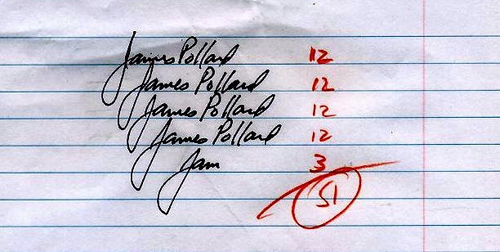 James Pollard 12
James Pollard 12
James Pollard 12
James Pollard 12
Jam 3
51